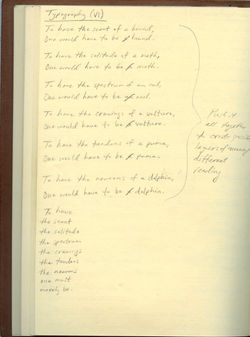 Typography (VI)
To have the scent of a hound,
One would have to be hound.
To have the solitude of a moth,
One would have to be moth.
To have the spectrum of an owl,
One would have to be owl.
To have the cravings of a vulture,
One would have to be vulture.
To have the tendons of a puma,
One would have to be puma.
To have the neurons of a dolphin,
One would have to be dolphin.
Push it
all together
to create
layers of meaning /
different
reading
To have
the scent
the solitude
the spectrum
the cravings
the tendons
the neurons
one must
merely be.